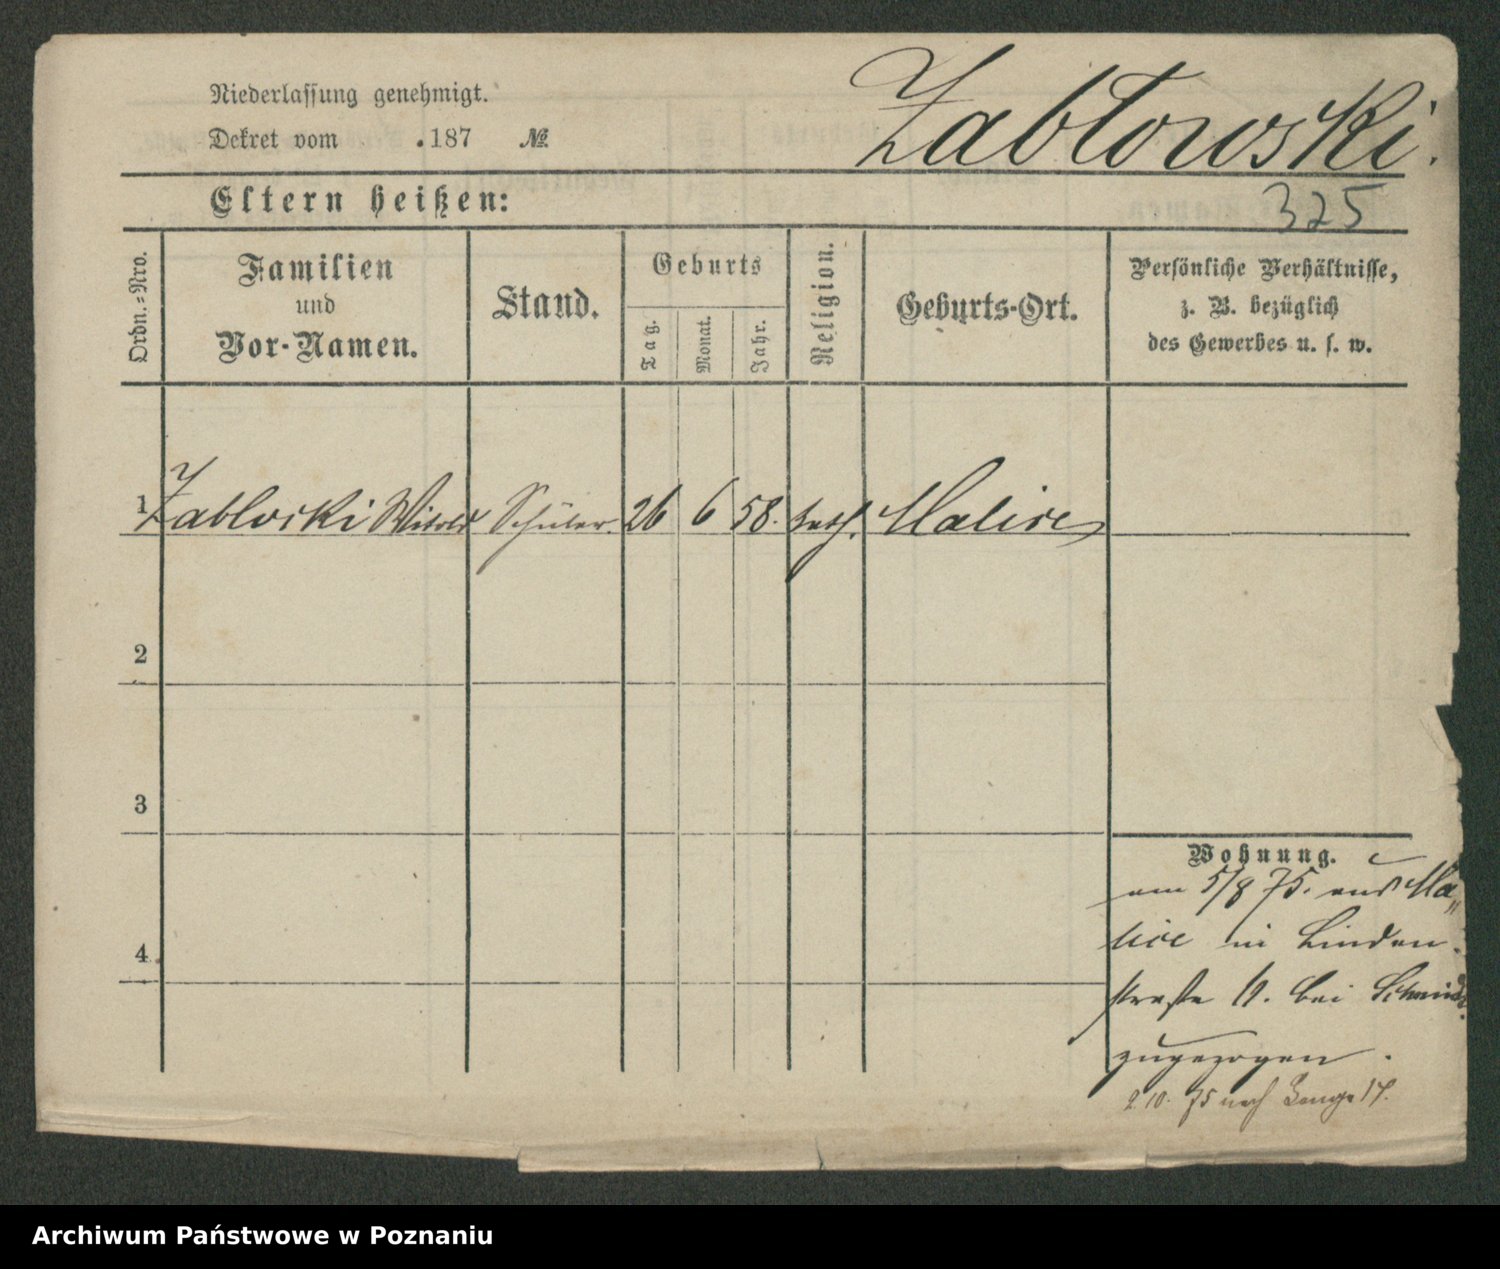 Niederlassung genehmigt.
Dekret vom .187 №
Zabłowski.
Eltern heißen:
325
Ordn.=Nro.
Familien
und
Vor-Namen.
Stand.
Geburts
Tag.
Monat.
Jahr.
Religion.
Geburts-Ort.
Persönliche Verhältnisse,
z. B. bezüglich
des Gewerbes u. s. w.
1 Zablocki Witold Schüler. 26 6 58. kath. Malice
2
3
4
Wohnung.
am 5/8 75. aus Ma„
lice in Linden-
straße 6. bei Schmidt
zugezogen.
2.10. 75 nach Lange 14.
Archiwum Państwowe w Poznaniu